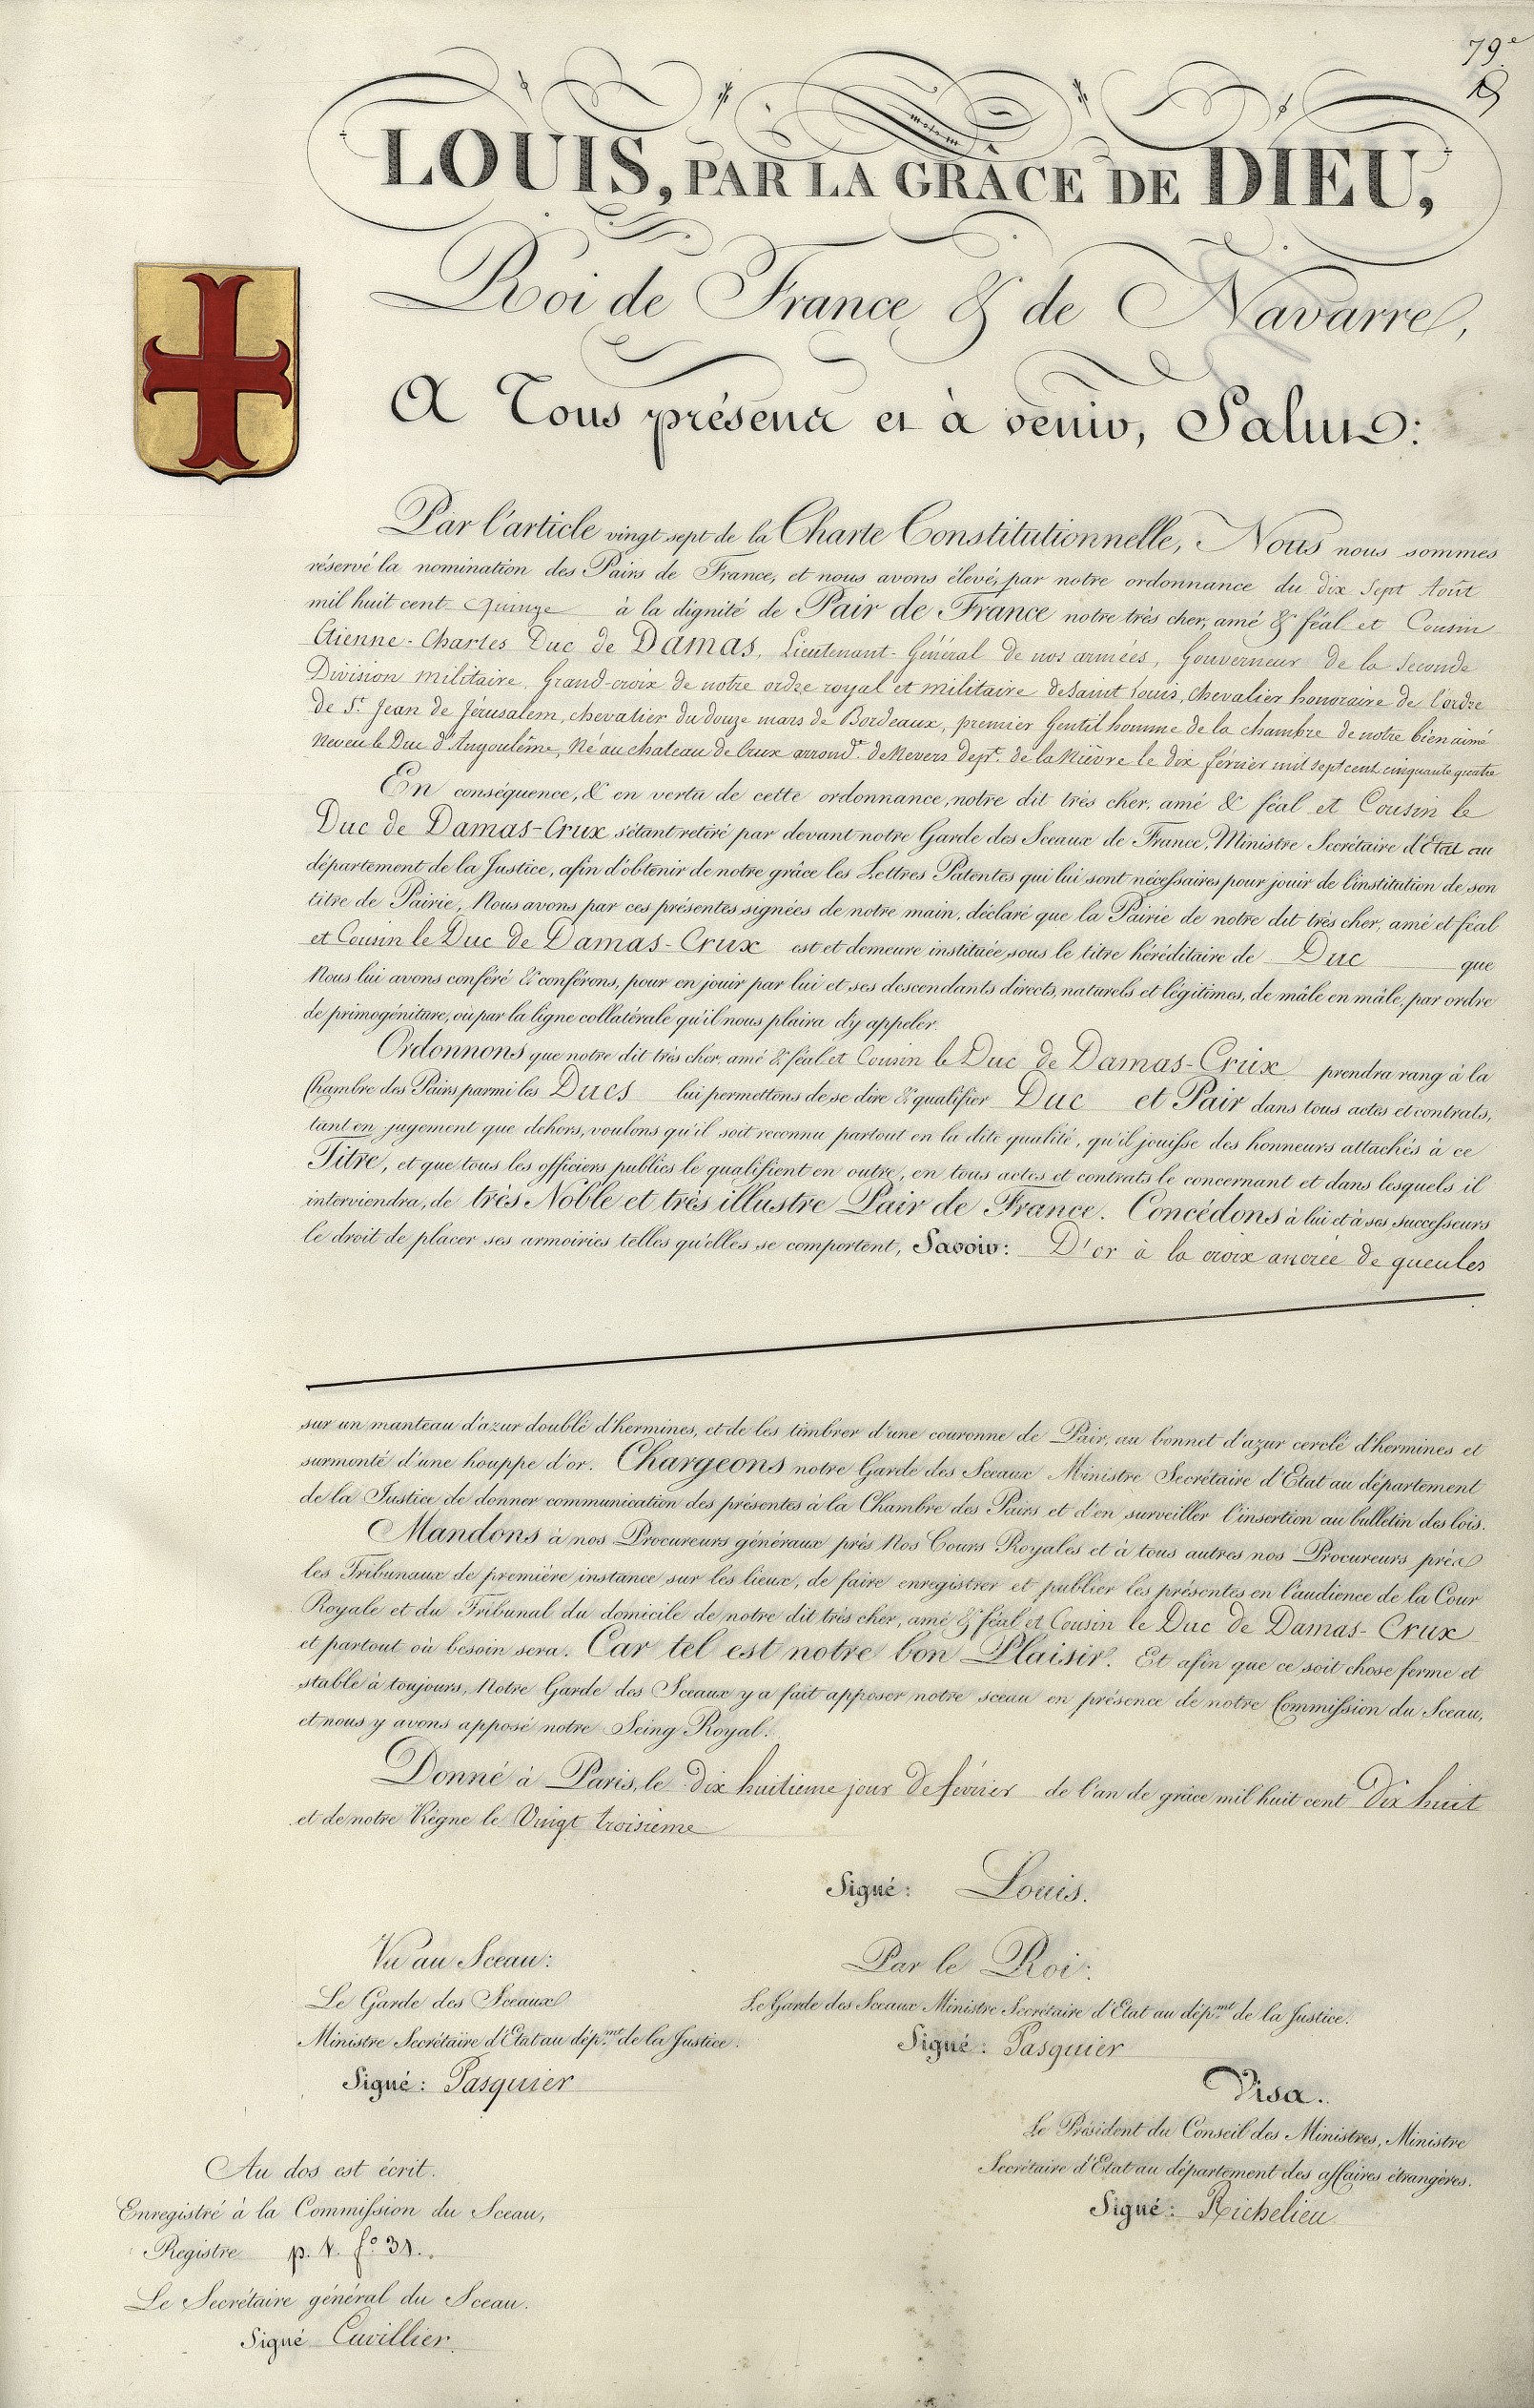 79e
LOUIS, PAR LA GRÂCE DE DIEU,
Roi de France & de Navarre,
A Tous présens et à venir, Salut:
Par l'article vingt sept de la Charte Constitutionnelle, Nous nous sommes
réservé la nomination des Pairs de France, et nous avons élevé, par notre ordonnance du dix Sept Août
mil huit cent quinze à la dignité de Pair de France notre très cher, amé & féal et Cousin
Etienne-Charles Duc de Damas, Lieutenant-Général de nos armées, Gouverneur de la Seconde
Division militaire, Grand-croix de notre ordre royal et militaire de Saint Louis, chevalier honoraire de l'ordre
de St. Jean de Jérusalem, chevalier du douze mars de Bordeaux, premier Gentilhomme de la chambre de notre bien aimé
Neveu le Duc d'Angoulême, Né au chateau de Crux arrondt. de Nevers dept. de la Nièvre le dix février mil sept cent cinquante quatre
En conséquence, & en vertu de cette ordonnance, notre dit très cher, amé & féal et Cousin le
Duc de Damas-Crux s'étant retiré par devant notre Garde des Sceaux de France, Ministre Secrétaire d'Etat au
département de la Justice, afin d'obtenir de notre grâce les Lettres Patentes qui lui sont nécessaires pour jouir de l'institution de son
titre de Pairie, Nous avons par ces présentes signées de notre main, déclaré que la Pairie de notre dit très cher, amé et féal
et Cousin le Duc de Damas-Crux est et demeure instituée, sous le titre héréditaire de Duc que
Nous lui avons conféré & conférons, pour en jouir par lui et ses descendants directs, naturels et légitimes, de mâle en mâle, par ordre
de primogéniture, ou par la ligne collatérale qu'il nous plaira d'y appeler.
Ordonnons que notre dit très cher, amé & féal et Cousin le Duc de Damas-Crux prendra rang à la
Chambre des Pairs parmi les Ducs lui permettons de se dire & qualifier Duc et Pair dans tous actes et contrats,
tant en jugement que dehors, voulons qu'il soit reconnu partout en la dite qualité, qu'il jouisse des honneurs attachés à ce
Titre, et que tous les officiers publics le qualifient en outre, en tous actes et contrats le concernant et dans lesquels il
interviendra, de très Noble et très illustre Pair de France. Concédons à lui et à ses successeurs
le droit de placer ses armoiries telles qu'elles se comportent, Savoir: D'or à la croix ancrée de gueules
sur un manteau d'azur doublé d'hermines, et de les timbrer d'une couronne de Pair, au bonnet d'azur cerclé d'hermines et
surmonté d'une houppe d'or. Chargeons notre Garde des Sceaux Ministre Secrétaire d'Etat au département
de la Justice de donner communication des présentes à la Chambre des Pairs et d'en surveiller l'insertion au bulletin des lois.
Mandons à nos Procureurs généraux près Nos Cours Royales et à tous autres nos Procureurs près
les Tribunaux de première instance sur les lieux, de faire enregistrer et publier les présentes en l'audience de la Cour
Royale et du Tribunal du domicile de notre dit très cher, amé & féal et Cousin le Duc de Damas-Crux
et partout où besoin sera. Car tel est notre bon Plaisir. Et afin que ce soit chose ferme et
stable à toujours, Notre Garde des Sceaux y a fait apposer notre sceau en présence de notre Commission du Sceau,
et nous y avons apposé notre Seing Royal.
Donné à Paris, le dix huitieme jour de février de l'an de grâce mil huit cent dix huit
et de notre Règne le Vingt troisieme
Signé: Louis.
Vu au Sceau:
Le Garde des Sceaux
Ministre Secrétaire d'Etat au dép.mt de la Justice.
Signé: Pasquier
Par le Roi:
Le Garde des Sceaux Ministre Secrétaire d'Etat au dép.mt de la Justice.
Signé: Pasquier
Visa.
Le Président du Conseil des Ministres, Ministre
Secrétaire d'Etat au département des affaires étrangères.
Signé: Richelieu
Au dos est écrit.
Enregistré à la Commission du Sceau,
Registre p. 4. fo 31.
Le Secrétaire général du Sceau.
Signé Cuvillier